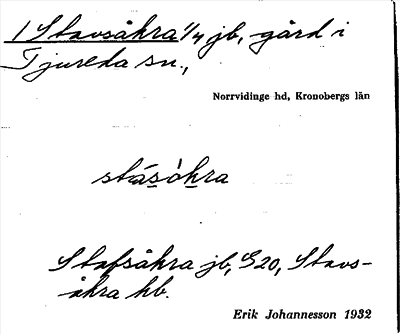 1 Stavsåkra 1/4 jb, gård i
Tjureda sn.,
Norrvidinge hd, Kronobergs län
stásòkra
Stafsåkra jb, G20, Stavs-
åkra hb.
Erik Johannesson 1932